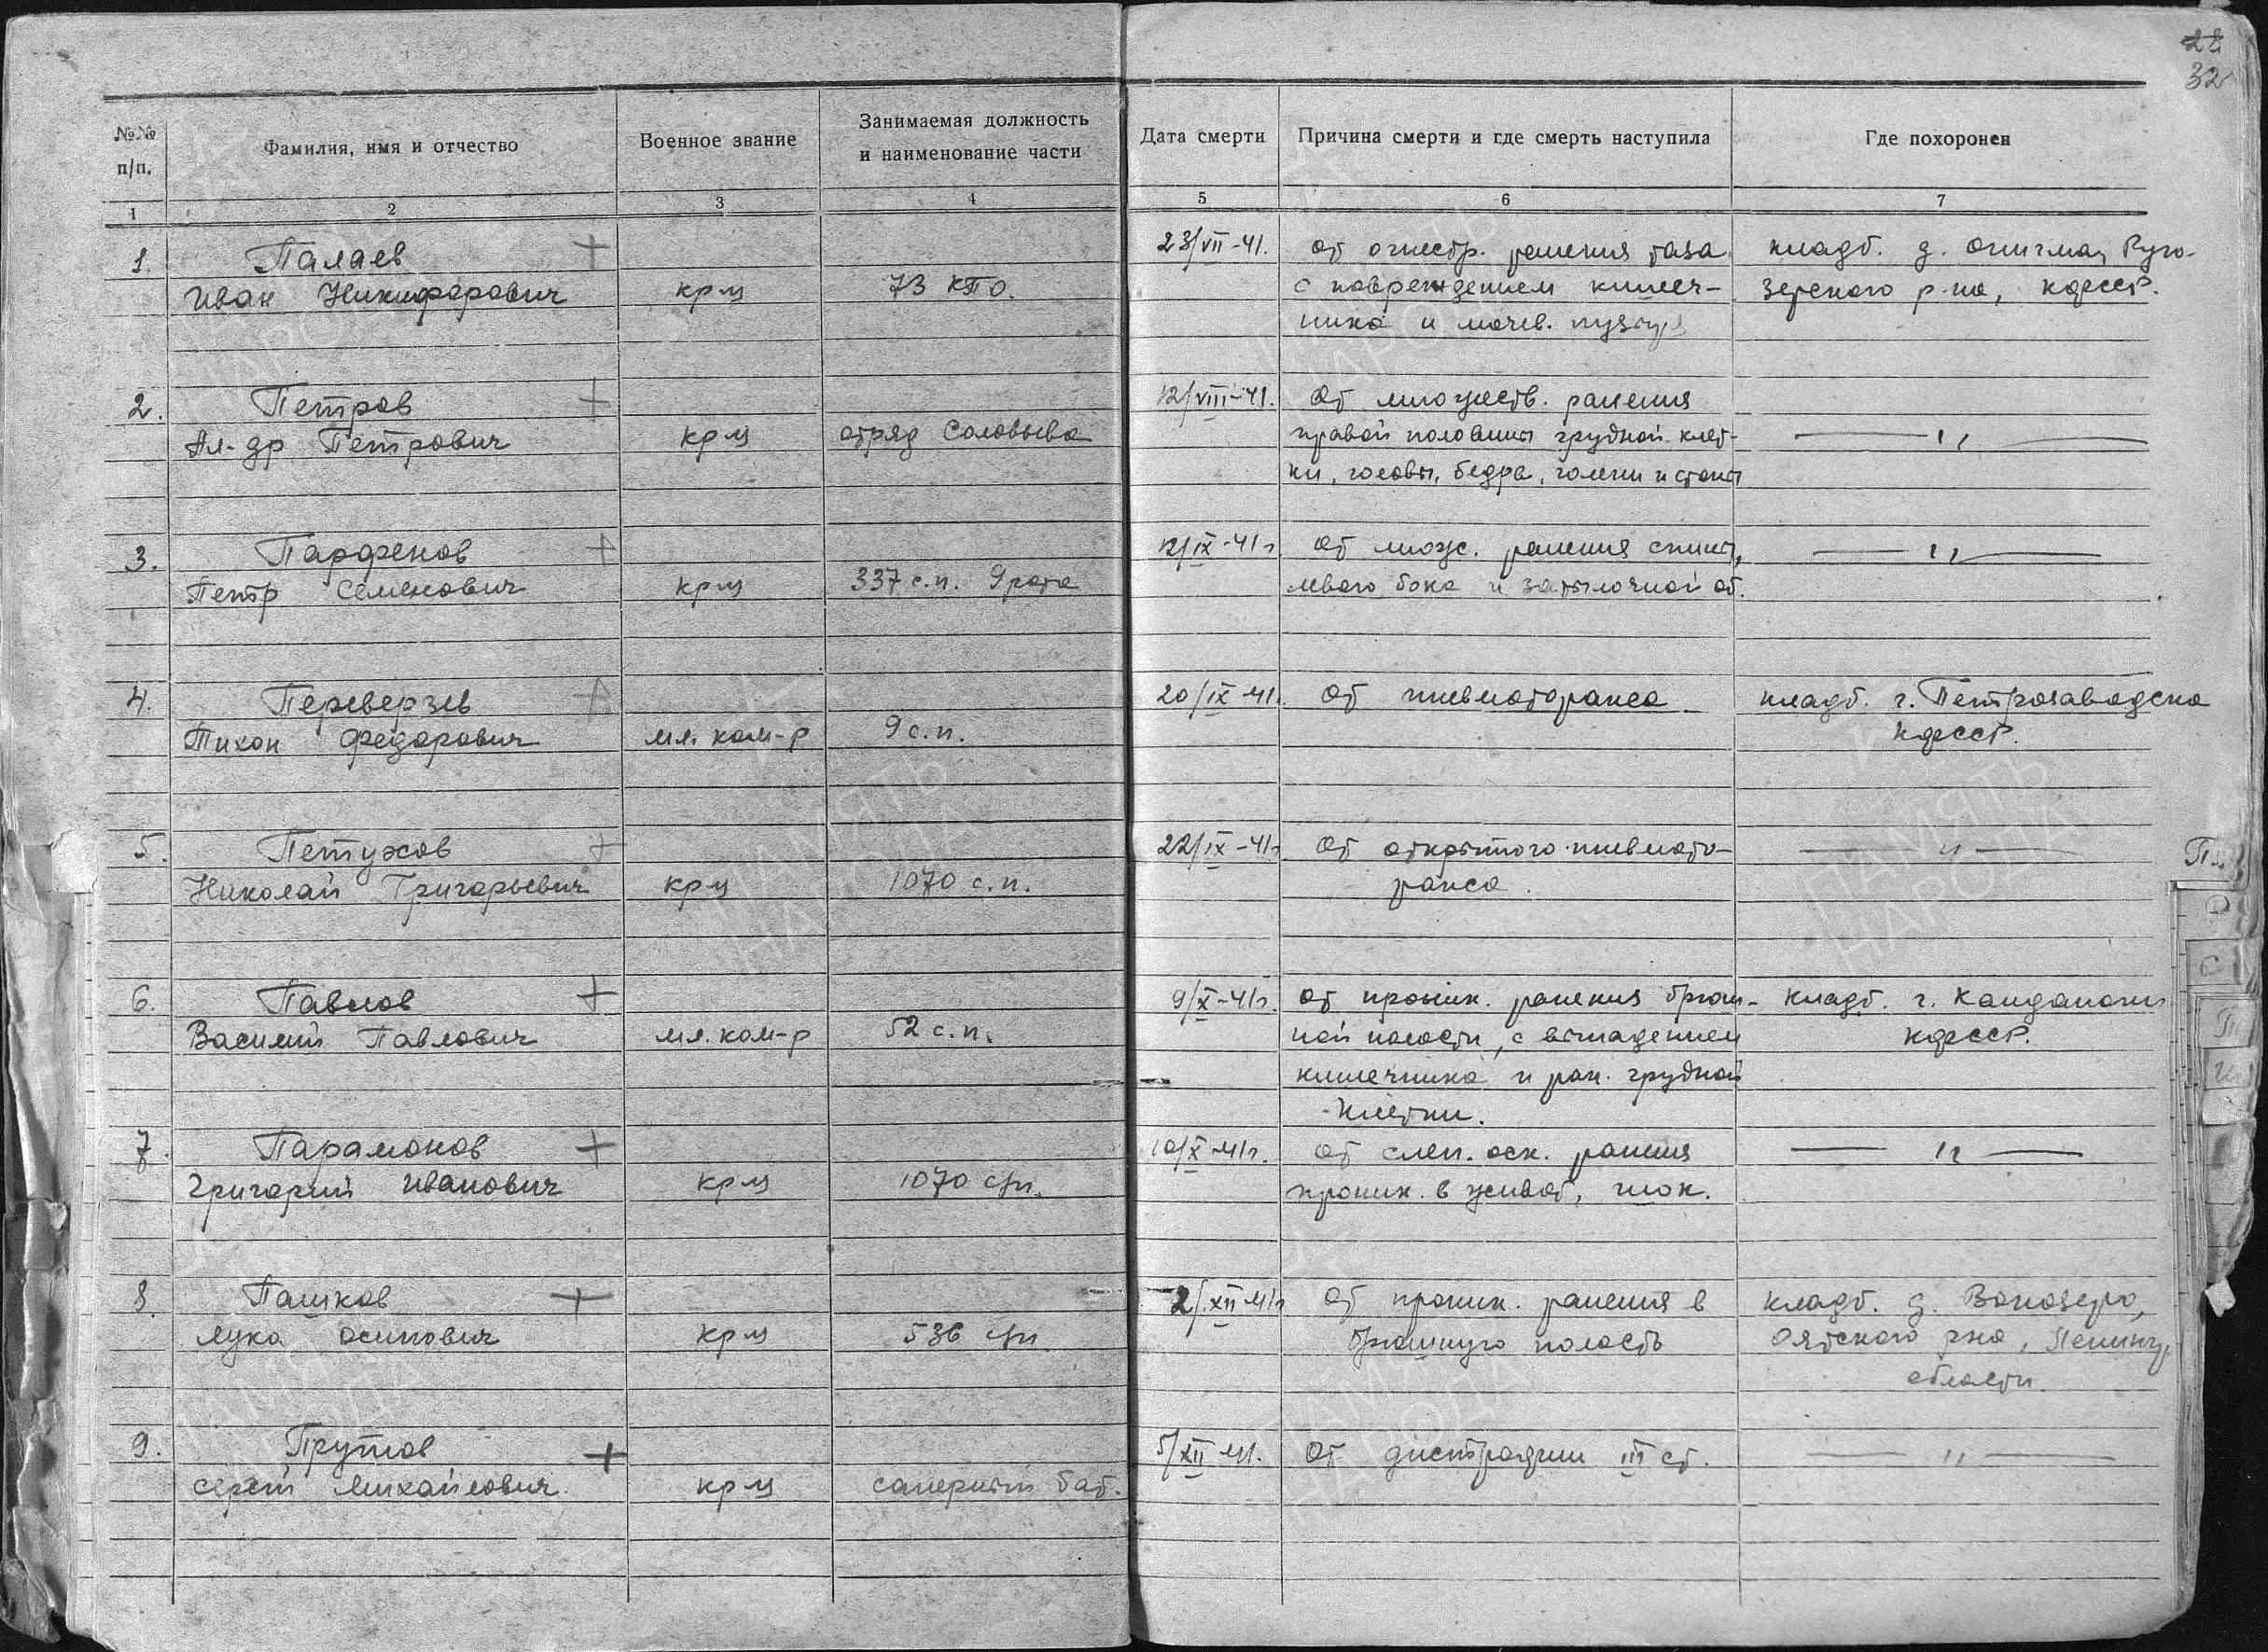 28
32
№№ п/п.
Фамилия, имя и отчество
Военное звание
Занимаемая должность и наименование части
Дата смерти
Причина смерти и где смерть наступила
Где похоронен
1 2 3 4 5 6 7
1. Палаев + 23/VII-41. от огнестр. ранения таза кладб. д. Онигма, Руго-
Иван Никифорович кр-ц 73 КПО. с повреждением кишеч- зерского р-на, КФССР.
ника и мочев. пузыря
2. Петров + 12/VIII-41. От множеств. ранения
Ал-др Петрович кр-ц отряд Соловьева правой половины грудной клет- — " —
ки, головы, бедра, голени и стопы
3. Парфенов + 12/IX-41г От множ. ранения спины, — " —
Петр Семенович кр-ц 337 с.п. 9 рота левого бока и затылочной об.
4. Переверзев + 20/IX 41г. От пневмоторакса. кладб. г. Петрозаводска
Тихон Федорович мл. ком-р 9 с.п. КФССР.
5. Петухов + 22/IX-41г От открытого пневмото- — " —
Николай Григорьевич кр-ц 1070 с.п. ракса.
П
6. Павлов + 9/X-41г. от проник. ранения брюш- кладб. г. Кандалакши
Василий Павлович мл. ком-р 52 с.п. ной полости, с выпадением КФССР.
кишечника и ран. грудной
клетки.
7. Парамонов + 10/X-41г. от слеп. оск. ранения — " —
Григорий Иванович кр-ц 1070 сп. проник. в живот, шок.
8. Пашков + 2/XII 41г От проник. ранения в кладб. д. Вонозеро,
Лука Осипович кр-ц 536 сп брюшную полость Оятского р-на, Ленингр.
области.
9. Прутов + 5/XII 41. От дистрофии III ст. — " —
Сергей Михайлович кр-ц саперный бат.
С
П